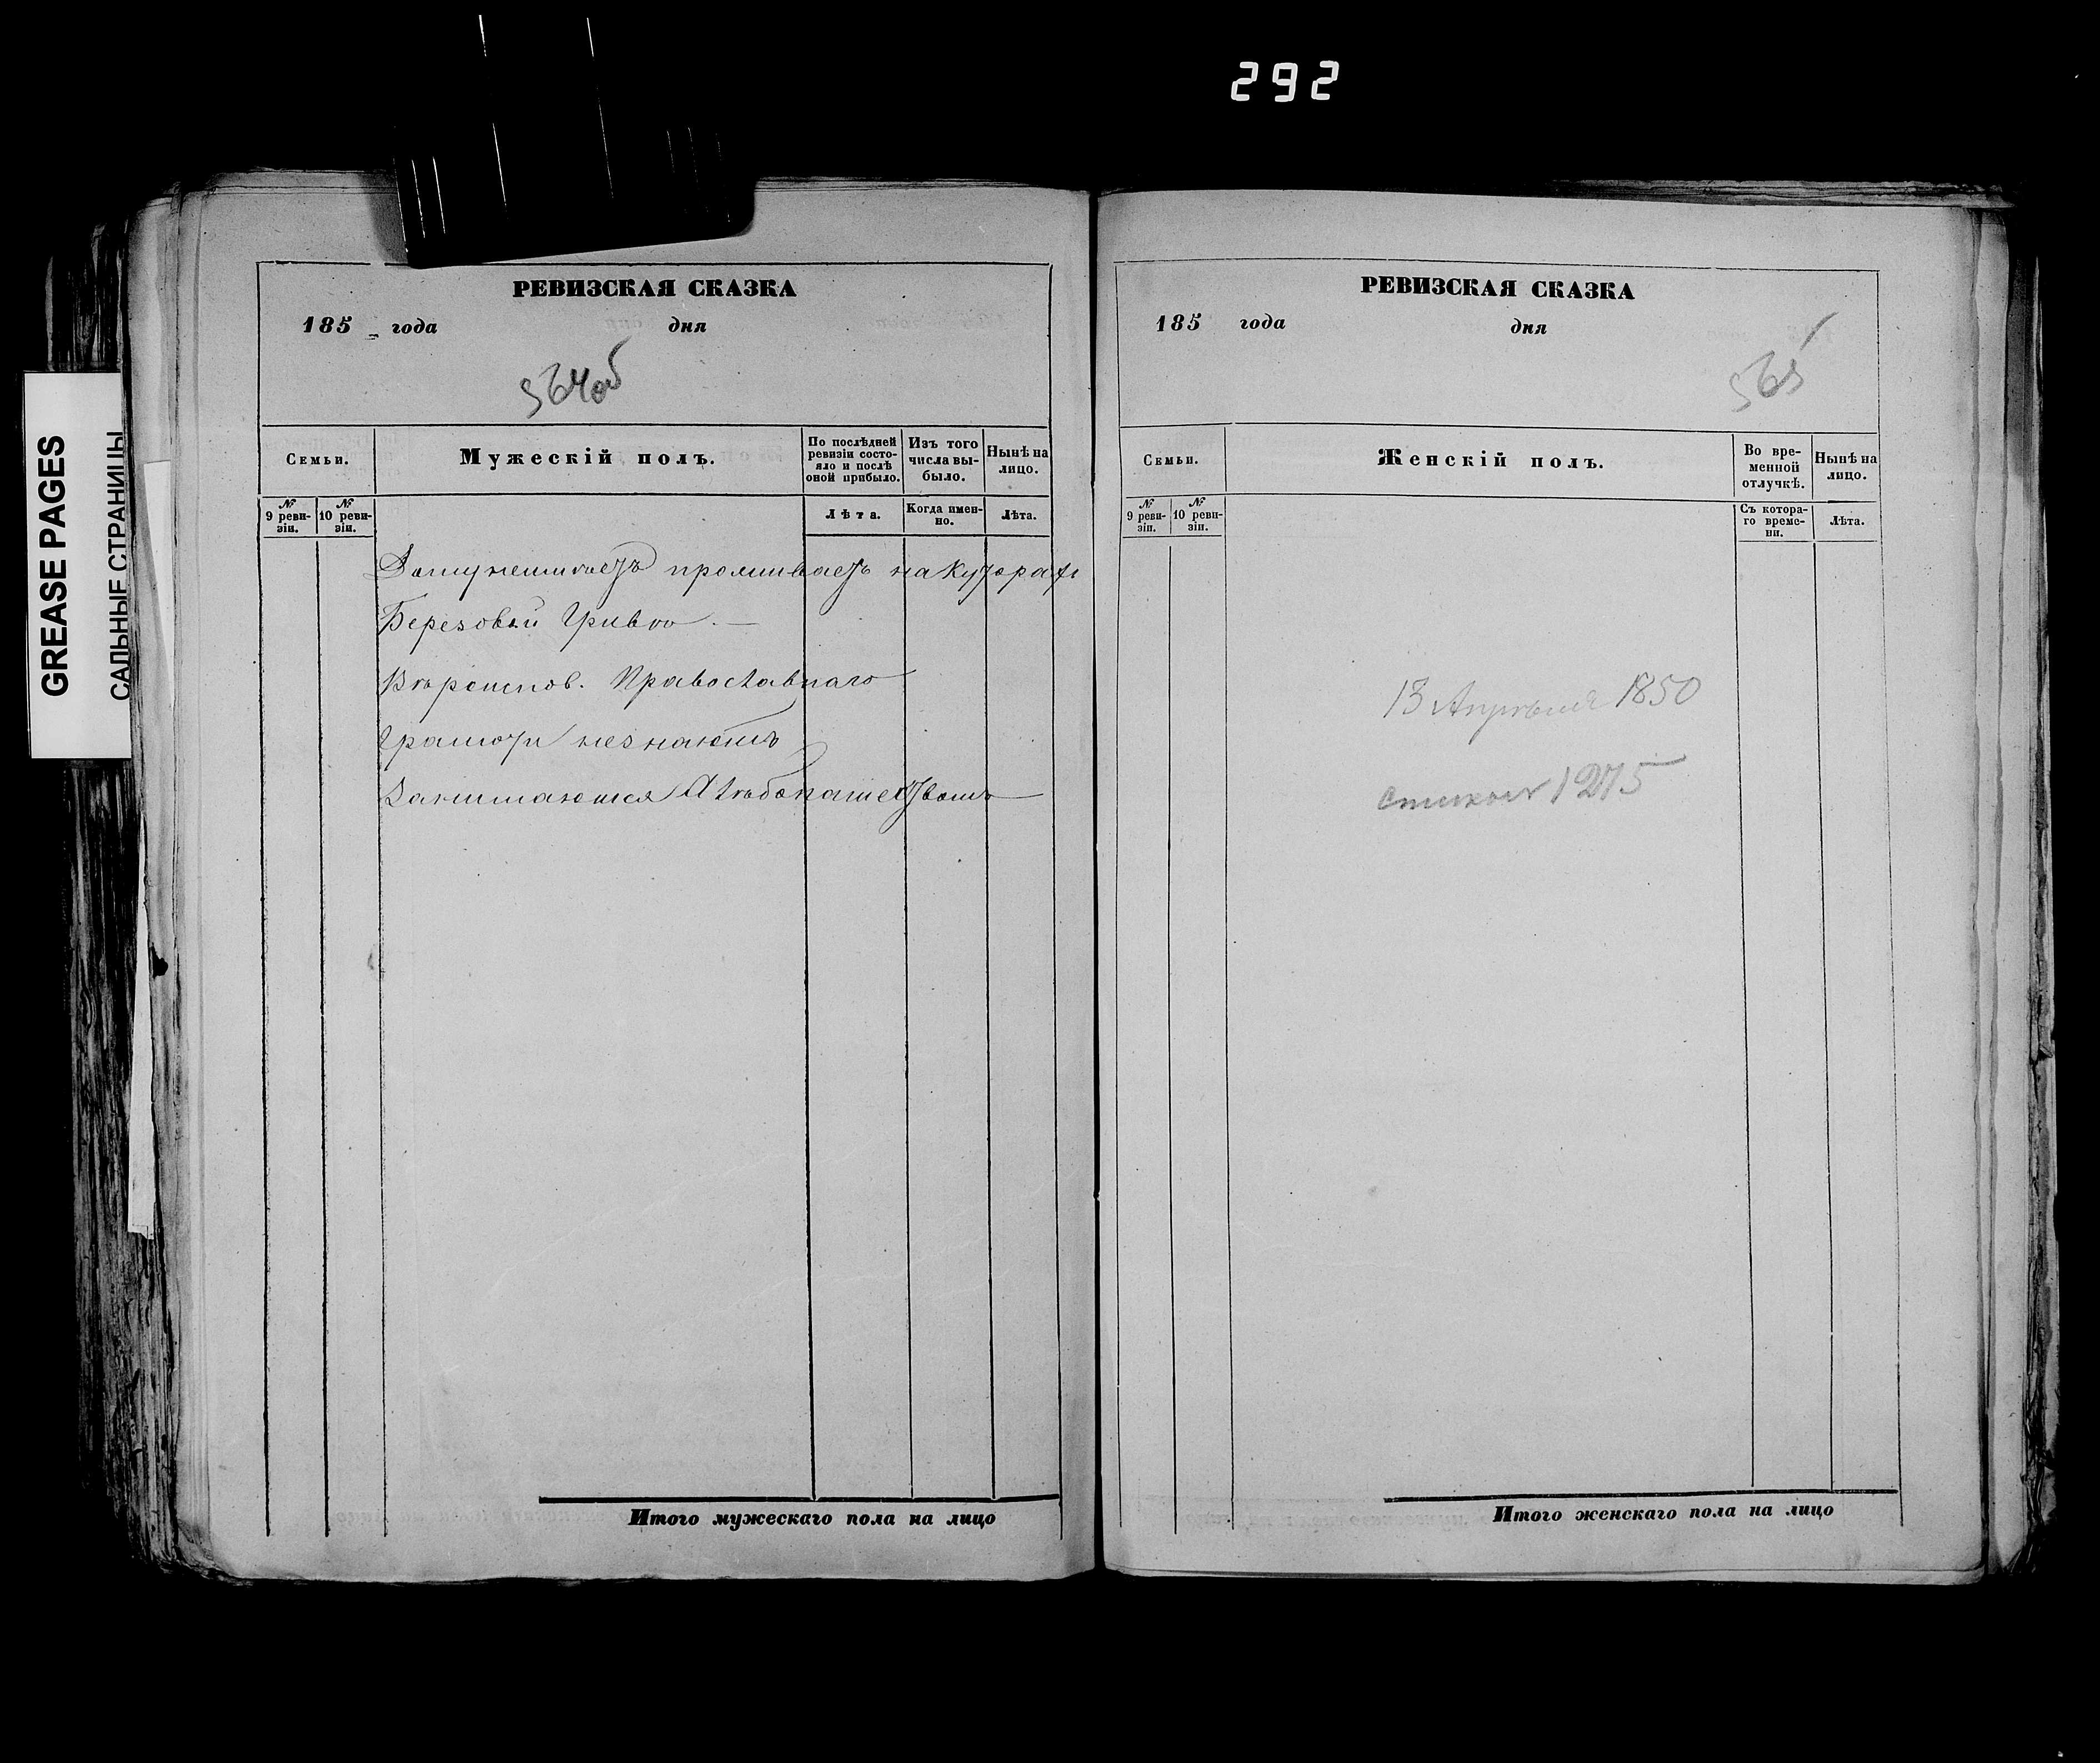 292
GREASE PAGES
САЛЬНЫЕ СТРАНИЦЫ
РЕВИЗСКАЯ СКАЗКА
185 года дня
564об
Семьи.
Мужескій полъ.
По послѣдней ревизіи состояло и послѣ оной прибыло.
Изъ того числа выбыло.
Нынѣ на лицо.
№ 9 ревизіи.
№ 10 ревизіи.
Лѣта.
Когда именно.
Лѣта.
проживаетъ на Хуторахъ
Березовой Гривы. —
Вѣроиспов. Православнаго
Грамоти незнаютъ
Занимаются Хлѣбопашествомъ
Итого мужескаго пола на лицо
РЕВИЗСКАЯ СКАЗКА
185 года дня
565
Семьи.
Женскій полъ.
Во временной отлучкѣ.
Нынѣ на лицо.
№ 9 ревизіи.
№ 10 ревизіи.
Съ котораго времени.
Лѣта.
13 Апрѣля 1850
1275
Итого женскаго пола на лицо